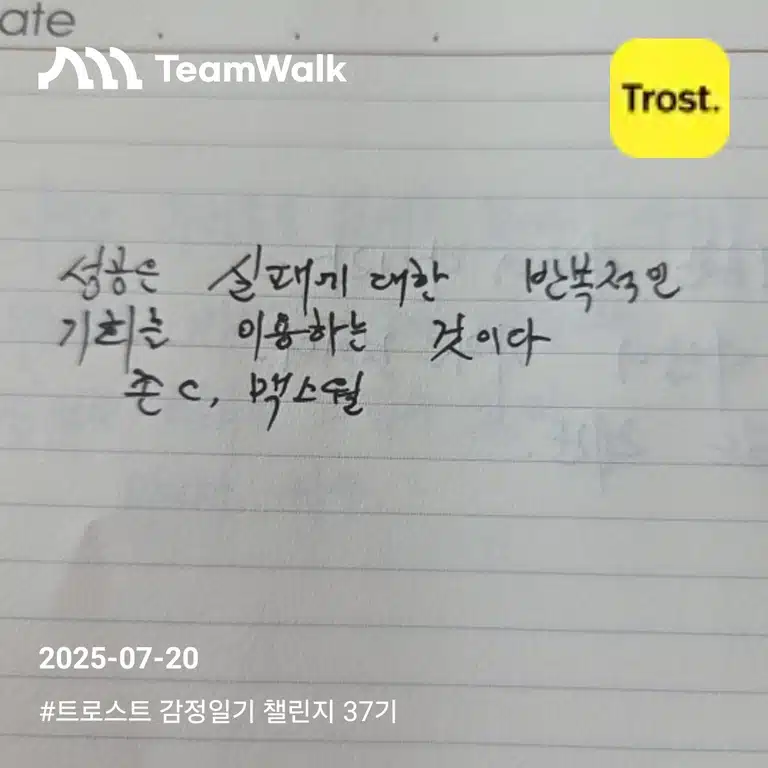 ate
TeamWalk
Trost.
성공은 실패에 대한 반복적인
기회를 이용하는 것이다
존 C, 맥스웰
2025-07-20
#트로스트 감정일기 챌린지 37기